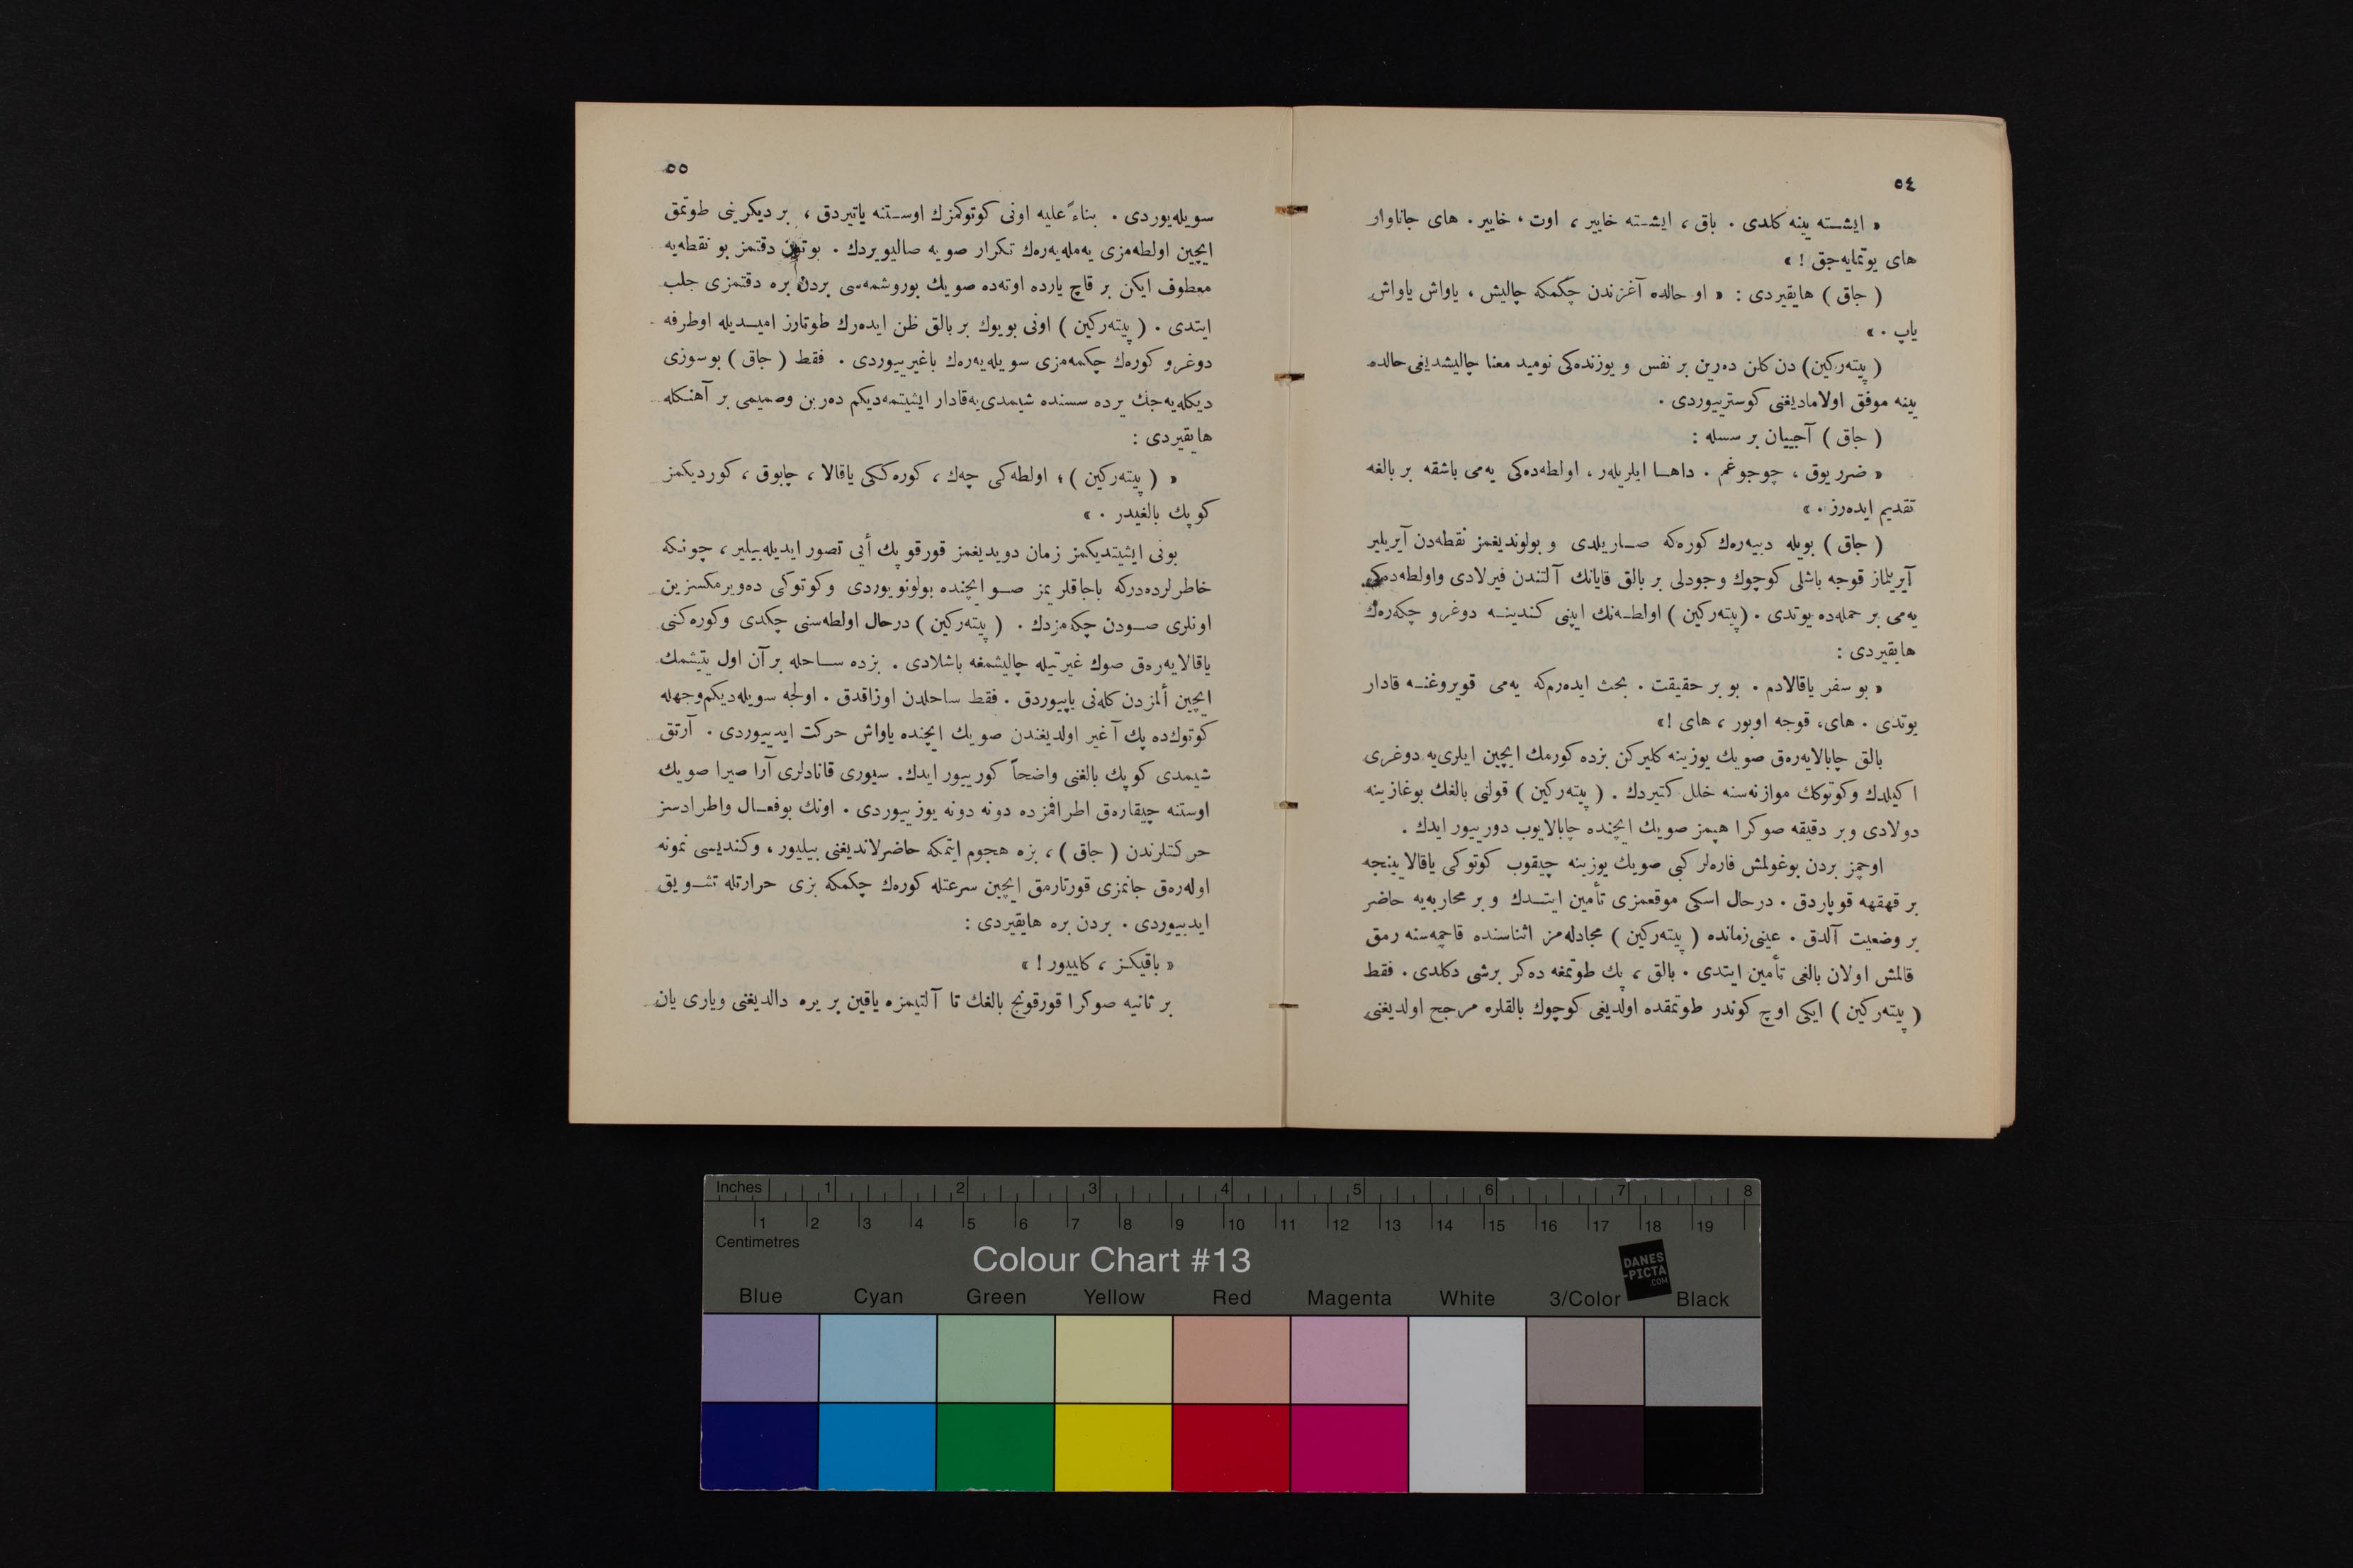 ٥٤
« ایشته ینه كلدی . باق ، ایشته خایر ، اوت ، خایر . های جاناوار
های یوتمایه‌جق ! »
( جاق ) هایقیردی : « او حالده آغزندن چكمكه چالیش ، یاواش یاواش
یاپ . »
( پیته‌ركین ) دن كلن ده‌رین بر نفس و یوزنده‌كی نومید معنا چالیشدیغی حالده
ینه موفق اولامادیغنی كوستریبوردی .
( جاق ) آجییان بر سسله :
« ضرر یوق ، چوجوغم . داها ایلریله‌ر ، اولطه‌ده‌كی یه‌می باشقه بر بالغه
تقدیم ایده‌رز . »
( جاق ) بویله دییه‌رك كوره‌كه صاریلدی و بولوندیغمز نقطه‌دن آیریلیر
آیریلماز قوجه باشلی كوچوك وجودلی بر بالق قایانك آلتندن فیرلادی واولطه‌ده‌كی
یه‌می بر حمله‌ده یوتدی . ( پیته‌ركین ) اولطه‌نك ایپنی كندینه دوغرو چكه‌رك
هایقیردی :
« بو سفر یاقالادم . بو بر حقیقت . بحث ایده‌رم‌كه یه‌می قویروغنه قادار
یوتدی . های ، قوجه اوبور ، های ! »
بالق چابالایه‌رق صویك یوزینه كلیركن بزده كورمك ایچین ایلری‌یه دوغری
اكیلدك وكوتوكك موازنه‌سنه خلل كتیردك . ( پیته‌ركین ) قولنی بالغك بوغازینه
دولادی وبر دقیقه صوكرا هپمز صویك ایچنده چابالایوب دورییور ایدك .
اوچمز بردن بوغولمش فاره‌لر كبی صویك یوزینه چیقوب كوتوكی یاقالاینجه
بر قهقهه قوپاردق . درحال اسكی موقعمزی تأمین ایتدك و بر محاربه‌یه حاضر
بر وضعیت آلدق . عینی زمانده ( پیته‌ركین ) مجادله‌مز اثناسنده قاچمه‌سنه رمق
قالمش اولان بالغی تأمین ایتدی . بالق ، پك طوتمغه ده‌كر برشی دكلدی . فقط
( پیته‌ركین ) ایكی اوچ كوندر طوتمقده اولدیغی كوچوك بالقلره مرجح اولدیغنی
٥٥
سویله‌یوردی . بناءً علیه اونی كوتوكمزك اوستنه یاتیردق ، بر دیكرینی طوتمق
ایچین اولطه‌مزی یه‌مله‌یه‌رك تكرار صویه صالیویردك . بوتون دقتمز بو نقطه‌یه
معطوف ایكن بر قاچ یارده اوته‌ده صویك بوروشمه‌سی بردن بره دقتمزی جلب
ایتدی . ( پیته‌ركین ) اونی بویوك بر بالق ظن ایده‌رك طوتارز امیدیله اوطرفه
دوغرو كوره‌ك چكمه‌مزی سویله‌یه‌رك باغیرییوردی . فقط ( جاق ) بوسوزی
دیكله‌یه‌جك یرده سسنده شیمدی‌یه‌قادار ایشیتمه‌دیكم ده‌رین وصمیمی بر آهنكله
هایقیردی :
« ( پیته‌ركین ) ؛ اولطه‌كی چه‌ك ، كوره‌ككی یاقالا ، چابوق ، كوردیكمز
كوپك بالغیدر . »
بونی ایشیتدیكمز زمان دویدیغمز قورقو پك أیی تصور ایدیله‌بیلیر ، چونكه
خاطرلرده‌دركه باجاقلریمز صو ایچنده بولونویوردی وكوتوكی ده‌ویرمكسزین
اونلری صودن چكه‌مزدك . ( پیته‌ركین ) درحال اولطه‌سنی چكدی وكوره‌كنی
یاقالایه‌رق صوك غیرتیله چالیشمغه باشلادی . بزده ساحله بر آن اول یتیشمك
ایچین ألمزدن كله‌نی یاپییوردق . فقط ساحلدن اوزاقدق . اولجه سویله‌دیكم وجهله
كوتوك‌ده پك آغیر اولدیغندن صویك ایچنده یاواش حركت ایدییوردی . آرتق
شیمدی كوپك بالغنی واضحاً كورییور ایدك . سیوری قانادلری آرا صیرا صویك
اوستنه چیقارق اطرافمزده دونه دونه یوزییوردی . اونك بوفعال واطرادسز
حركتلرندن ( جاق ) ، بزه هجوم ایتمكه حاضرلاندیغنی بیلیور ، وكندیسی نمونه
اوله‌رق جانمزی قورتارمق ایچین سرعتله كوره‌ك چكمكه بزی حرارتله تشویق
ایدییوردی . بردن بره هایقیردی :
« باقیكز ، كلییور ! »
بر ثانیه صوكرا قورقونج بالغك تا آلتیمزه یاقین بر یره دالدیغنی ویاری یان
Inches 1 2 3 4 5 6 7 8
1 2 3 4 5 6 7 8 9 10 11 12 13 14 15 16 17 18 19
Centimetres
Colour Chart #13
DANES
-PICTA
.COM
Blue Cyan Green Yellow Red Magenta White 3/Color Black